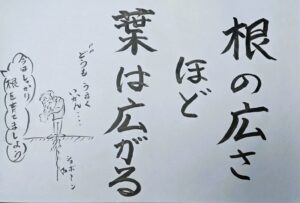 根の広さ
ほど
葉は広がる
どうもうまく
いかん…
ショボーン
今はしっかり
根を育てましょう